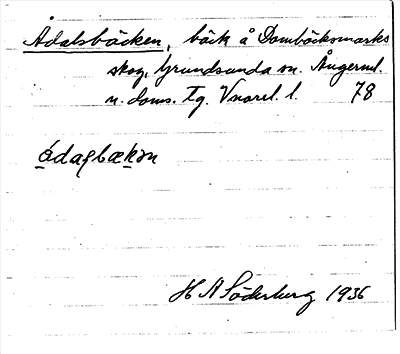 Ådalsbäcken, bäck å Dombäcksmarks
skog, Grundsunda sn. Ångerml.
n. doms. Tg. Vnorrl. l. 78
ódaɐbækən
H A Söderberg 1936